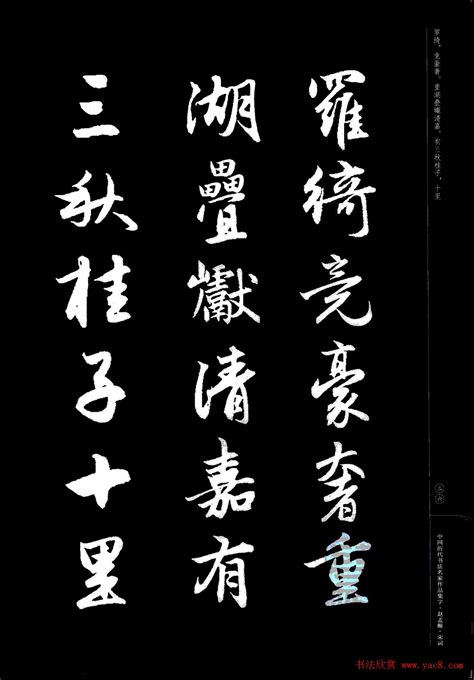 羅綺竞豪奢重
湖疊巘清嘉有
三秋桂子十里
罗绮，竞豪奢。重湖叠巘清嘉。有三秋桂子，十里
三六
中国历代书法名家作品集字·赵孟頫·宋词
书法欣赏 www.yac8.com